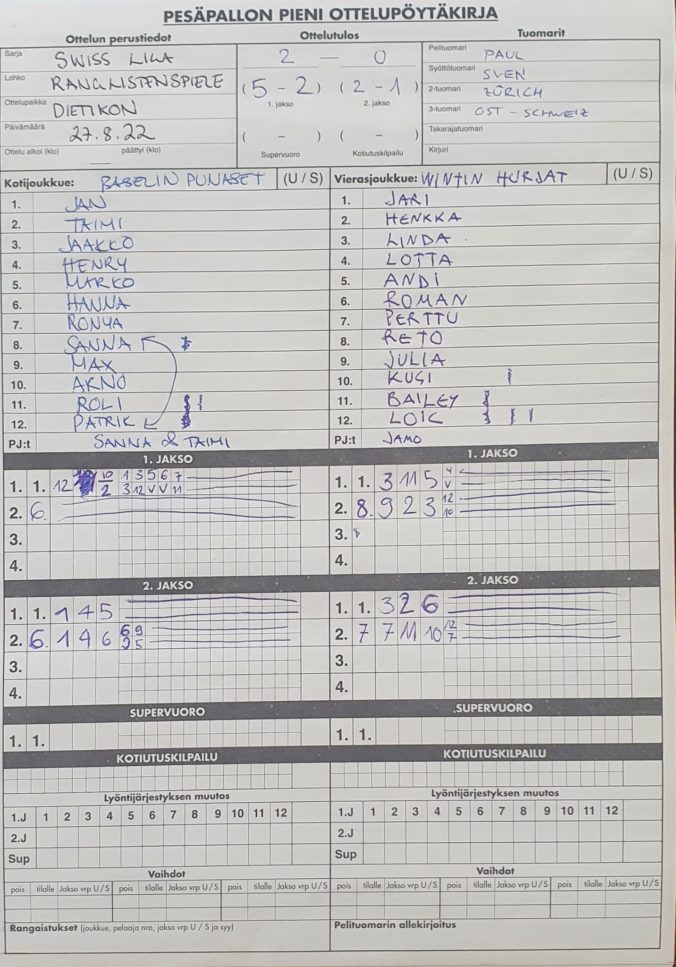 PESÄPALLON PIENI OTTELUPÖYTÄKIRJA
Ottelun perustiedot
Sarja SWISS LIGA
Lohko RANGLISTENSPIELE
Ottelupaikka DIETIKON
Päivämäärä 27.8.22
Ottelu alkoi (klo) päättyi (klo)
Ottelutulos
2 — 0
(5 - 2) (2 - 1)
1. jakso 2. jakso
( - ) ( - )
Supervuoro Kotiutuskilpailu
Tuomarit
Pelituomari PAUL
Syöttötuomari SVEN
2-tuomari ZÜRICH
3-tuomari OST - SCHWEIZ
Takarajatuomari
Kirjuri
Kotijoukkue: BASELIN PUNASET (U / S)
1. JAN
2. TAIMI
3. JAAKKO
4. HENRY
5. MARKO
6. HANNA
7. RONYA
8. SANNA
9. MAX
10. ARNO
11. ROLI
12. PATRIK
PJ:t SANNA & TAIMI
Vierasjoukkue: WINTIN HURJAT (U / S)
1. JARI
2. HENKKA
3. LINDA
4. LOTTA
5. ANDI
6. ROMAN
7. PERTTU
8. RETO
9. JULIA
10. KUGI
11. BAILEY
12. LOIC
PJ:t JAMO
1. JAKSO
1. 1. 12 10 1 3 5 6 7
2 3 12 V V 11
2. 6.
3.
4.
1. JAKSO
1. 1. 3 11 5 4
V
2. 8. 9 2 3 12
10
3. 8
4.
2. JAKSO
1. 1. 1 4 5
2. 6. 1 4 6 6 9
9 5
3.
4.
2. JAKSO
1. 1. 3 2 6
2. 7 7 11 10 12
7
3.
4.
SUPERVUORO
1. 1.
SUPERVUORO
1. 1.
KOTIUTUSKILPAILU
KOTIUTUSKILPAILU
Lyöntijärjestyksen muutos
1.J 1 2 3 4 5 6 7 8 9 10 11 12
2.J
Sup
Lyöntijärjestyksen muutos
1.J 1 2 3 4 5 6 7 8 9 10 11 12
2.J
Sup
Vaihdot
pois tilalle Jakso vrp U / S pois tilalle Jakso vrp U / S pois tilalle Jakso vrp U / S
Vaihdot
pois tilalle Jakso vrp U / S pois tilalle Jakso vrp U / S pois tilalle Jakso vrp U / S
Rangaistukset (joukkue, pelaaja nro, jakso vrp U / S ja syy)
Pelituomarin allekirjoitus